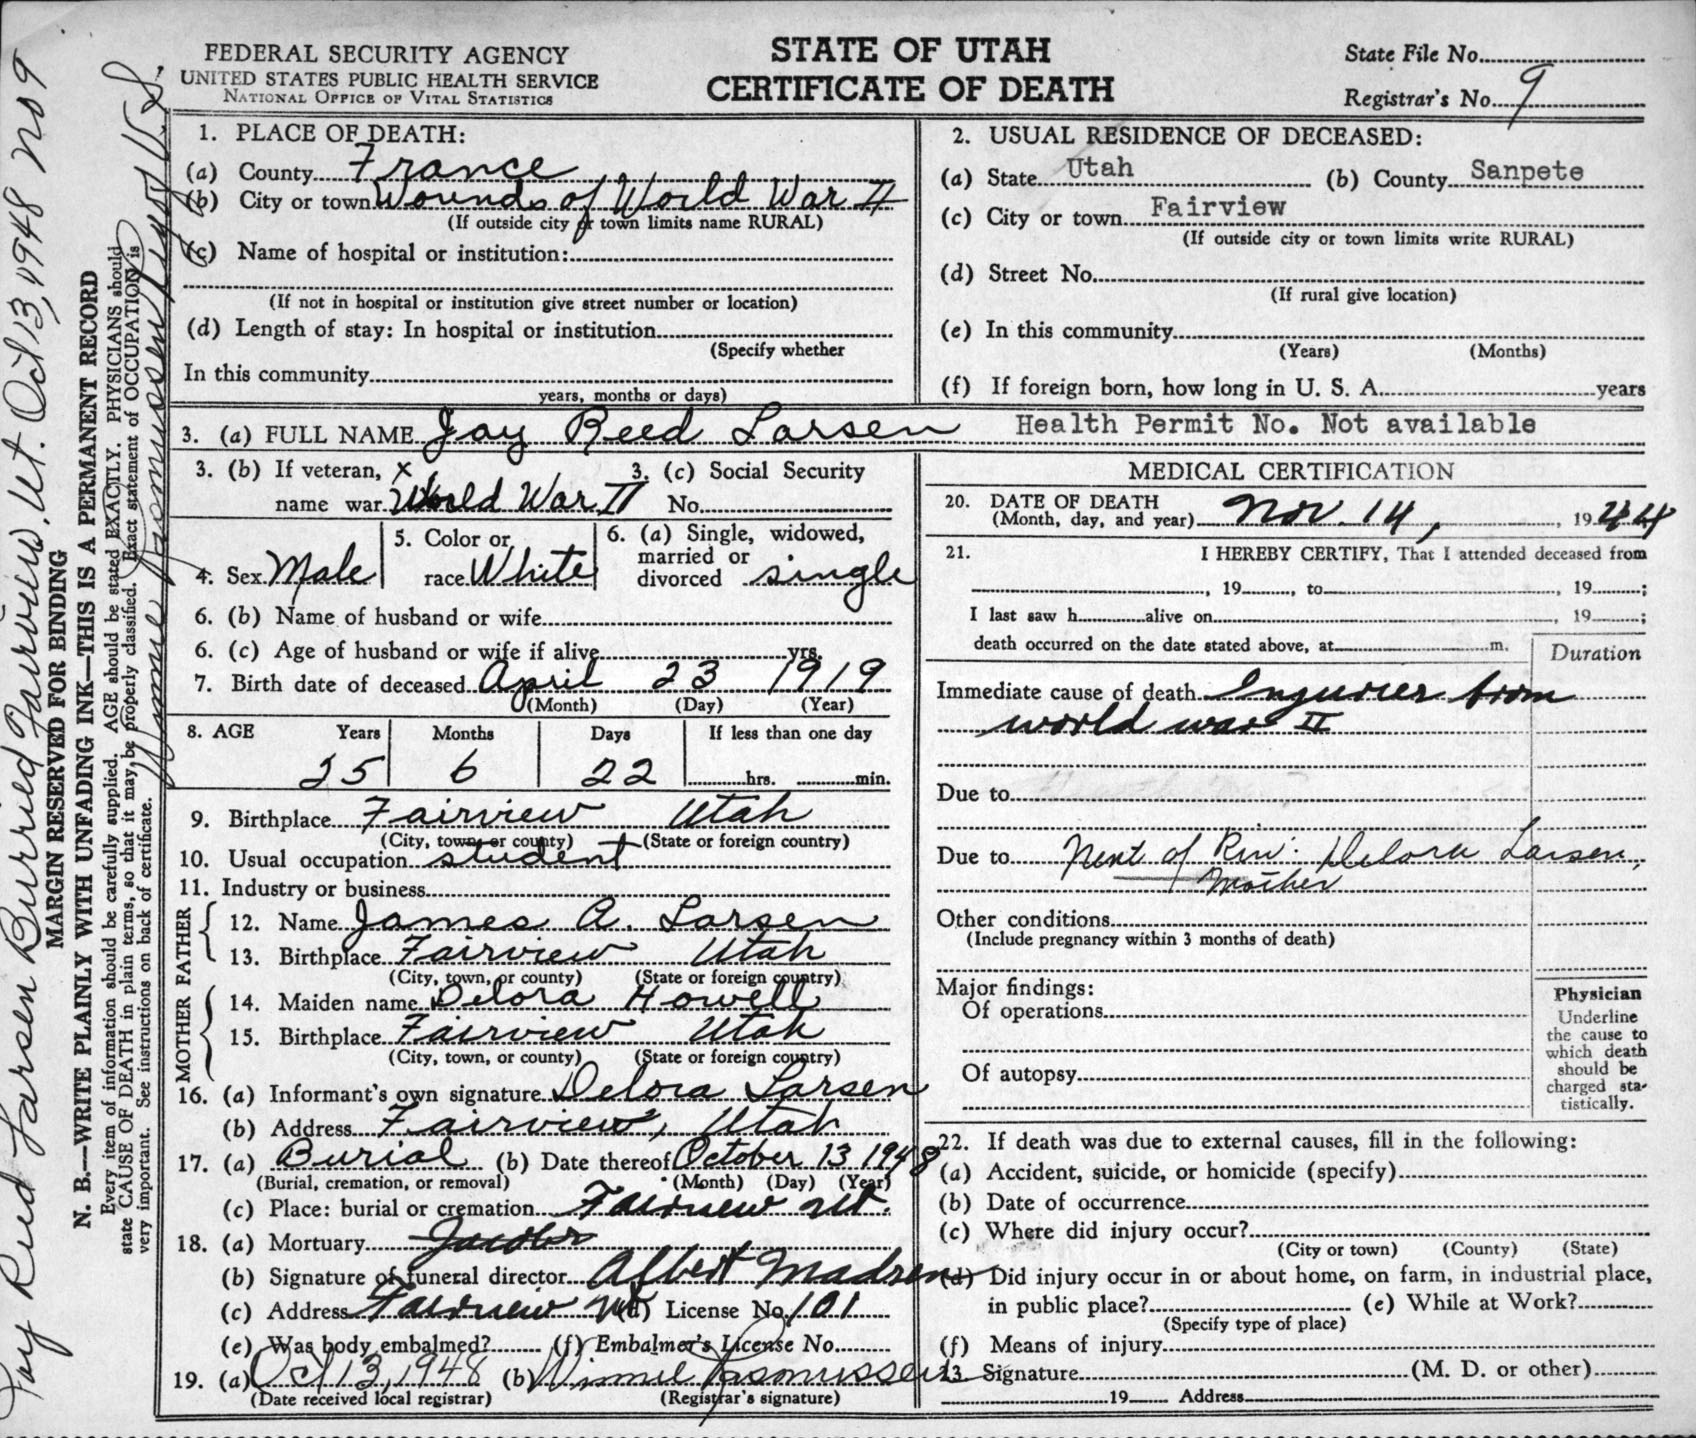 FEDERAL SECURITY AGENCY
UNITED STATES PUBLIC HEALTH SERVICE
NATIONAL OFFICE OF VITAL STATISTICS
STATE OF UTAH
CERTIFICATE OF DEATH
State File No.
Registrar's No. 9
1. PLACE OF DEATH:
(a) County France
(b) City or town Wounds of World War II
(If outside city or town limits name RURAL)
(c) Name of hospital or institution:
(If not in hospital or institution give street number or location)
(d) Length of stay: In hospital or institution
(Specify whether
In this community
years, months or days)
2. USUAL RESIDENCE OF DECEASED:
(a) State Utah (b) County Sanpete
(c) City or town Fairview
(If outside city or town limits write RURAL)
(d) Street No.
(If rural give location)
(e) In this community
(Years) (Months)
(f) If foreign born, how long in U. S. A. years
3. (a) FULL NAME Jay Reed Larsen Health Permit No. Not available
3. (b) If veteran, x 3. (c) Social Security
name war World War II No.
4. Sex Male
5. Color or
race White
6. (a) Single, widowed,
married or
divorced single
6. (b) Name of husband or wife
6. (c) Age of husband or wife if alive yrs.
7. Birth date of deceased April 23 1919
(Month) (Day) (Year)
8. AGE Years Months Days If less than one day
25 6 22 hrs. min.
9. Birthplace Fairview Utah
(City, town, or county) (State or foreign country)
10. Usual occupation student
11. Industry or business
FATHER
12. Name James A. Larsen
13. Birthplace Fairview Utah
(City, town, or county) (State or foreign country)
MOTHER
14. Maiden name Delora Howell
15. Birthplace Fairview Utah
(City, town, or county) (State or foreign country)
16. (a) Informant's own signature Delora Larsen
(b) Address Fairview, Utah
17. (a) Burial (b) Date thereof October 13 1948
(Burial, cremation, or removal) (Month) (Day) (Year)
(c) Place: burial or cremation Fairview Ut.
18. (a) Mortuary Jacobs
(b) Signature of funeral director Albert Madsen
(c) Address Fairview Ut (d) License No. 101
(e) Was body embalmed? (f) Embalmer's License No.
19. (a) Oct 13, 1948 (b) Winnie Rasmussen
(Date received local registrar) (Registrar's signature)
MEDICAL CERTIFICATION
20. DATE OF DEATH
(Month, day, and year) Nov. 14, 1944
21. I HEREBY CERTIFY, That I attended deceased from
, 19 , to , 19 ;
I last saw h alive on , 19 ;
death occurred on the date stated above, at m.
Duration
Immediate cause of death Injuries from
world war II
Due to
Due to Next of Kin: Delora Larsen,
Mother
Other conditions
(Include pregnancy within 3 months of death)
Major findings:
Of operations
Of autopsy
Physician
Underline
the cause to
which death
should be
charged sta-
tistically.
22. If death was due to external causes, fill in the following:
(a) Accident, suicide, or homicide (specify)
(b) Date of occurrence
(c) Where did injury occur?
(City or town) (County) (State)
(d) Did injury occur in or about home, on farm, in industrial place,
in public place? (e) While at Work?
(Specify type of place)
(f) Means of injury
23. Signature (M. D. or other)
19 Address
Jay Reed Larsen Burried Fairview, Ut. Oct 13, 1948 No 9
MARGIN RESERVED FOR BINDING
N. B.—WRITE PLAINLY WITH UNFADING INK—THIS IS A PERMANENT RECORD
Every item of information should be carefully supplied. AGE should be stated EXACTLY. PHYSICIANS should
state CAUSE OF DEATH in plain terms, so that it may be properly classified. Exact statement of OCCUPATION is
very important. See instructions on back of certificate.
Winnie Rasmussen V. S.